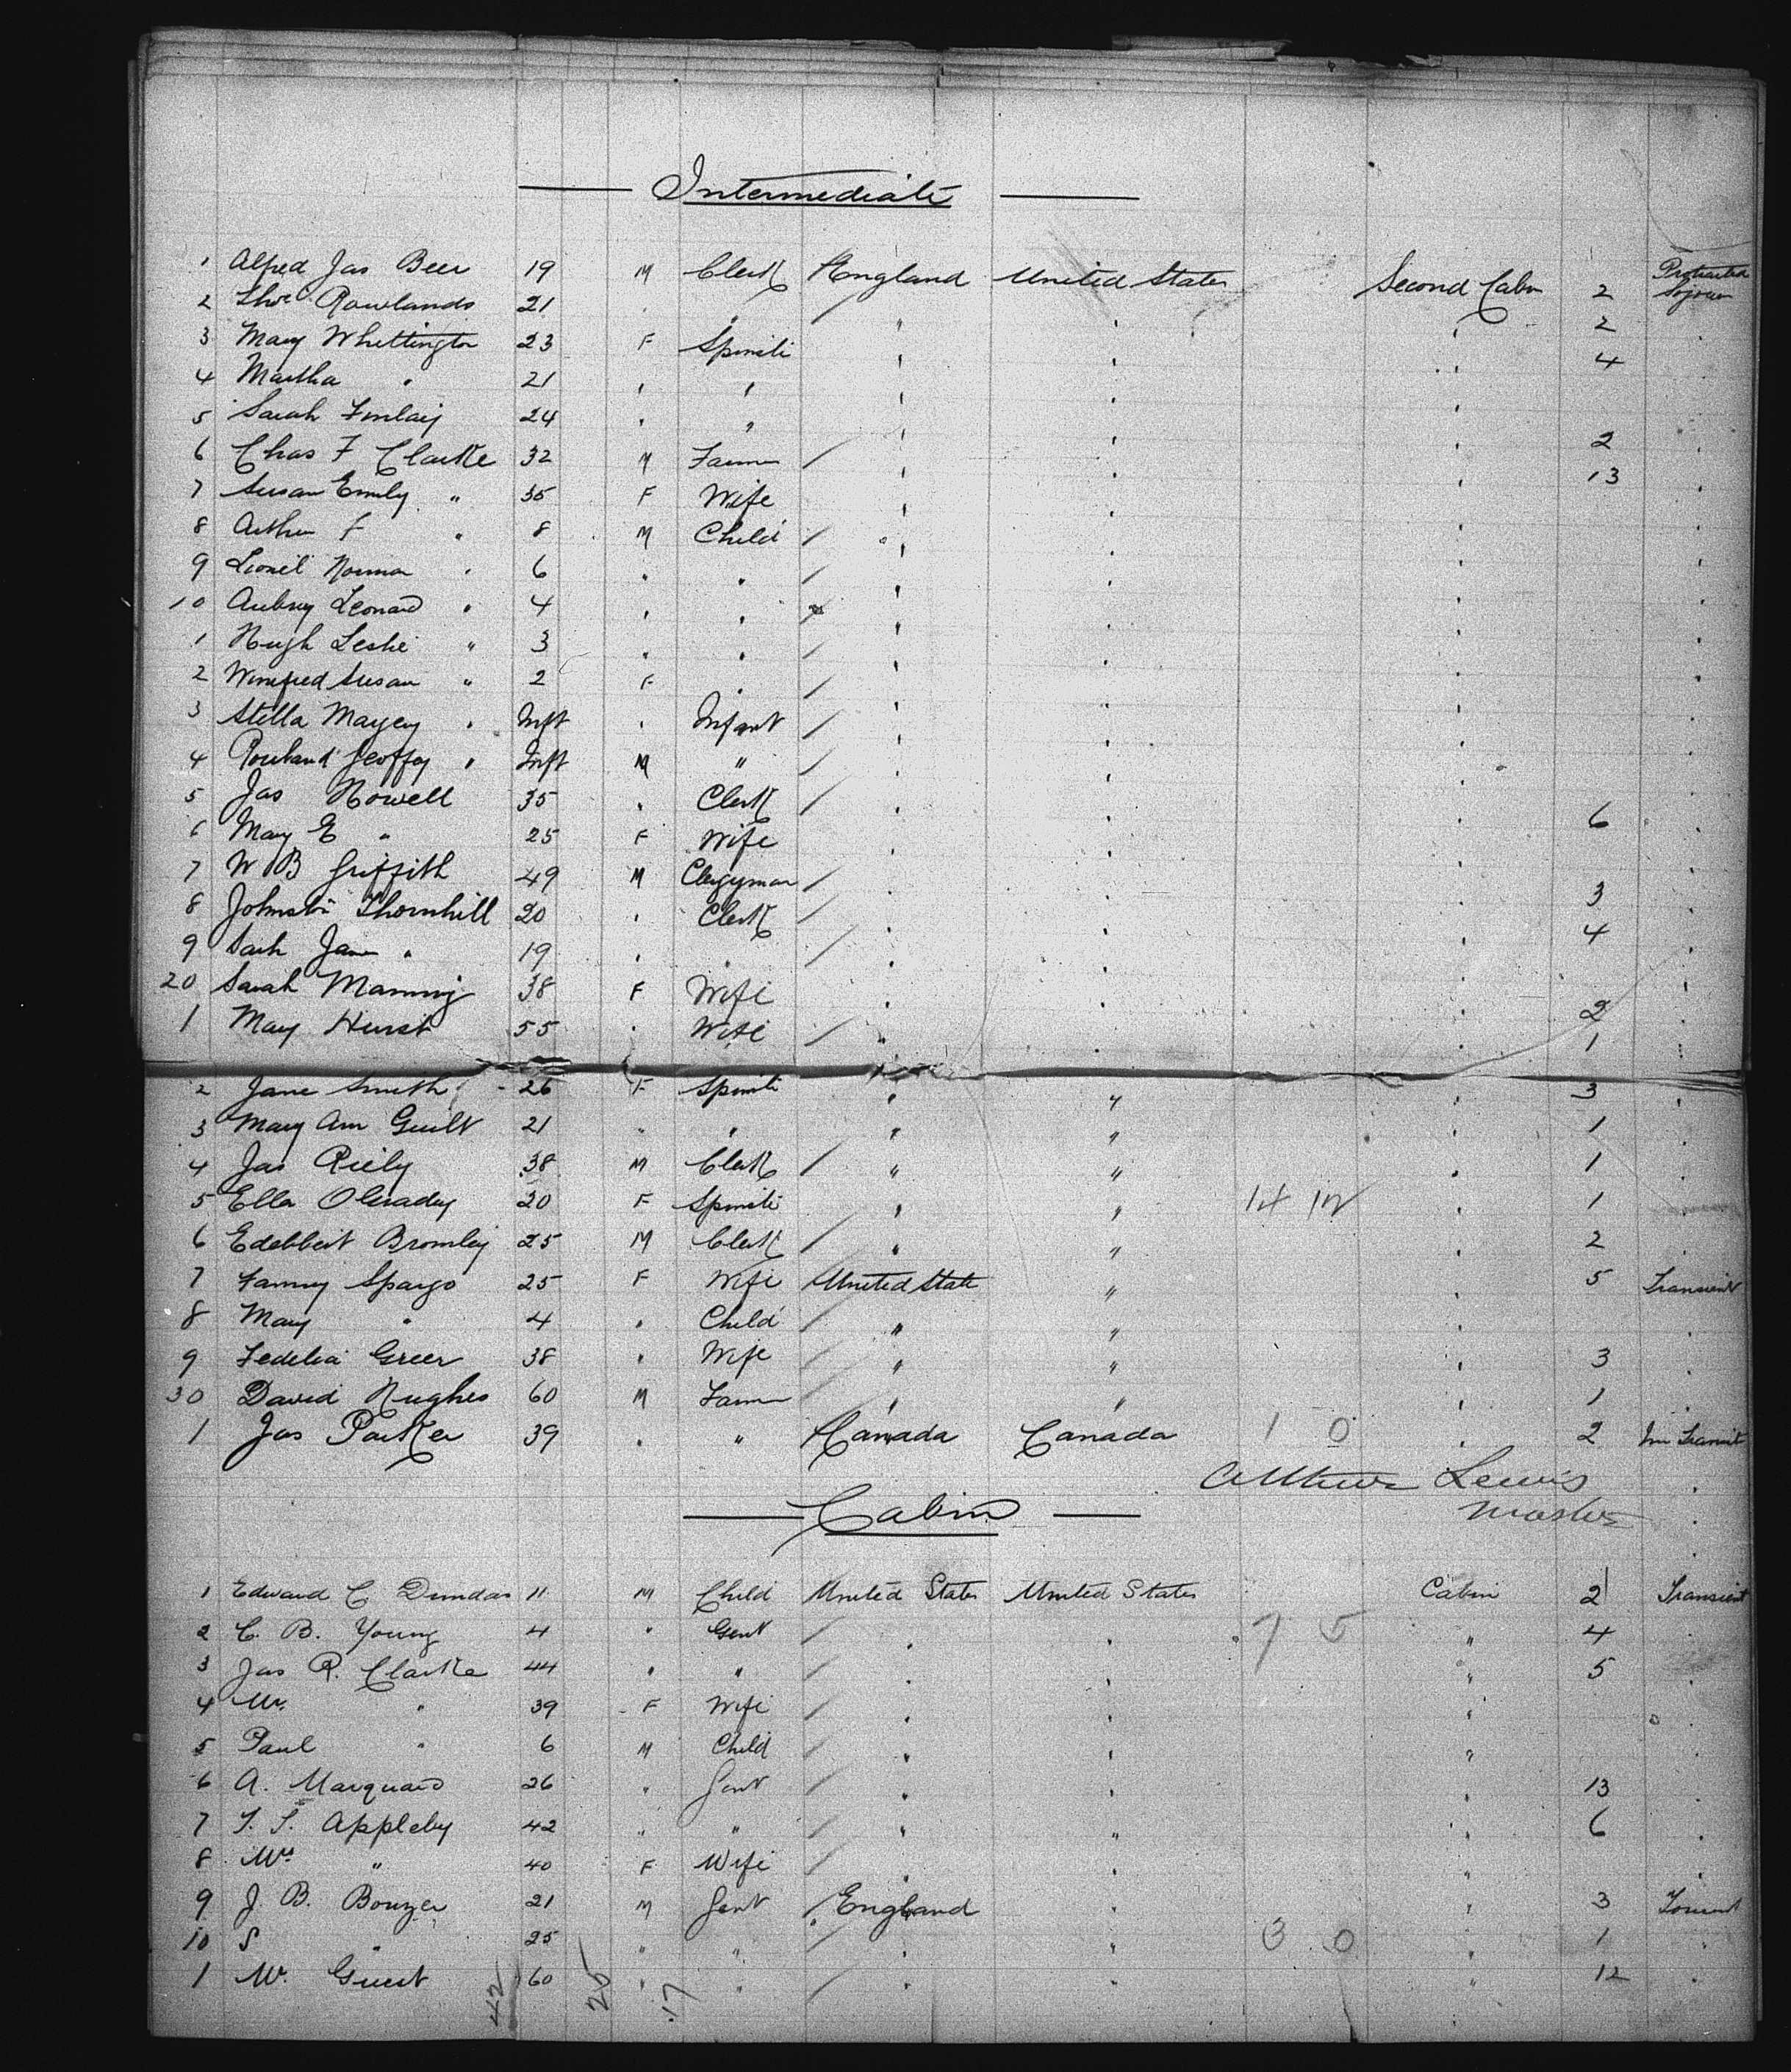 Intermediate
1 Alfred Jas Beer 19 M Clerk England United States Second Cabin 2 Protracted Sojourn
2 Thos Rowlands 21 " " " " " 2 "
3 Mary Whittington 23 F Spinste " " " 4 "
4 Martha " 21 " " " " " "
5 Sarah Finlay 24 " " " " " 2 "
6 Chas F Clarke 32 M Farmer " " " 13 "
7 Susan Emily " 35 F Wife " " " "
8 Arthur F " 8 M Child " " " "
9 Lionel Norman " 6 " " " " " "
10 Aubrey Leonard " 4 " " " " " "
1 Hugh Leslie " 3 " " " " " "
2 Winifred Susan " 2 F " " " " "
3 Stella " Inft " Infant " " " "
4 Rowland Geoffry " Inft M " " " " "
5 Jas Howell 35 " Clerk " " " 6 "
6 Mary E " 25 F Wife " " " "
7 W B Griffith 49 M Clergyman " " " 3 "
8 Johnston Thornhill 20 " Clerk " " " 4 "
9 Sarh Jane " 19 " " " " " "
20 Sarah Manning 38 F Wife " " " 2 "
1 Mary Hurst 55 " Wife " " " 1 "
2 Jane Smith 26 F Spinste " " " 3 "
3 Mary Ann Guilt 21 " " " " " 1 "
4 Jas Riely 38 M Clerk " " " 1 "
5 Ella OGrady 20 F Spinste " " 14 12 " 1 "
6 Edebbert Bromley 25 M Clerk " " " 2 "
7 Fanny Spargo 25 F Wife United State " " 5 Transient
8 Mary " 4 " Child " " " "
9 Fedelia Greer 38 " Wife " " " 3 "
30 David Hughes 60 M Farmer " " " 1 "
1 Jas Parker 39 " " Canada Canada 1 0 " 2 In Transit
Lewis
Master
Cabin
1 Edward C Dundas 11 M Child United States United States Cabin 2 Transient
2 C. B. Young 4 " Gent " " 7 5 " 4 "
3 Jas R. Clarke 44 " " " " " 5 "
4 Mrs " 39 F Wife " " " "
5 Paul " 6 M Child " " " "
6 A. Marquard 26 " Gent " " " 13 "
7 T. S. Appleby 42 " " " " " 6 "
8 Mrs " 40 F Wife " " " "
9 J. B. Bouzer 21 M Gent England " " 3 Tourist
10 S " 25 " " " " 3 0 " 1 "
1 Mr. Guest 60 " " " " " 12 "
42 25 17